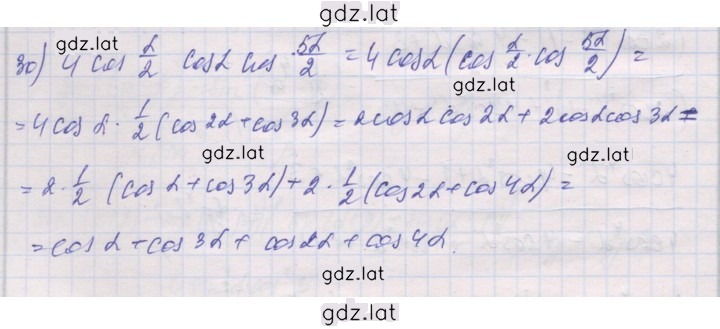 gdz.lat
30) 4 cos α/2 cosα cos 5α/2 = 4 cosα (cos α/2 · cos 5α/2) =
gdz.lat
gdz.lat
= 4 cos α · 1/2 (cos 2α + cos 3α) = 2 cosα cos 2α + 2 cosα cos 3α =
gdz.lat
gdz.lat
= 2 · 1/2 (cos α + cos 3α) + 2 · 1/2 (cos 2α + cos 4α) =
gdz.lat
= cos α + cos 3α + cos 2α + cos 4α.
gdz.lat
gdz.lat